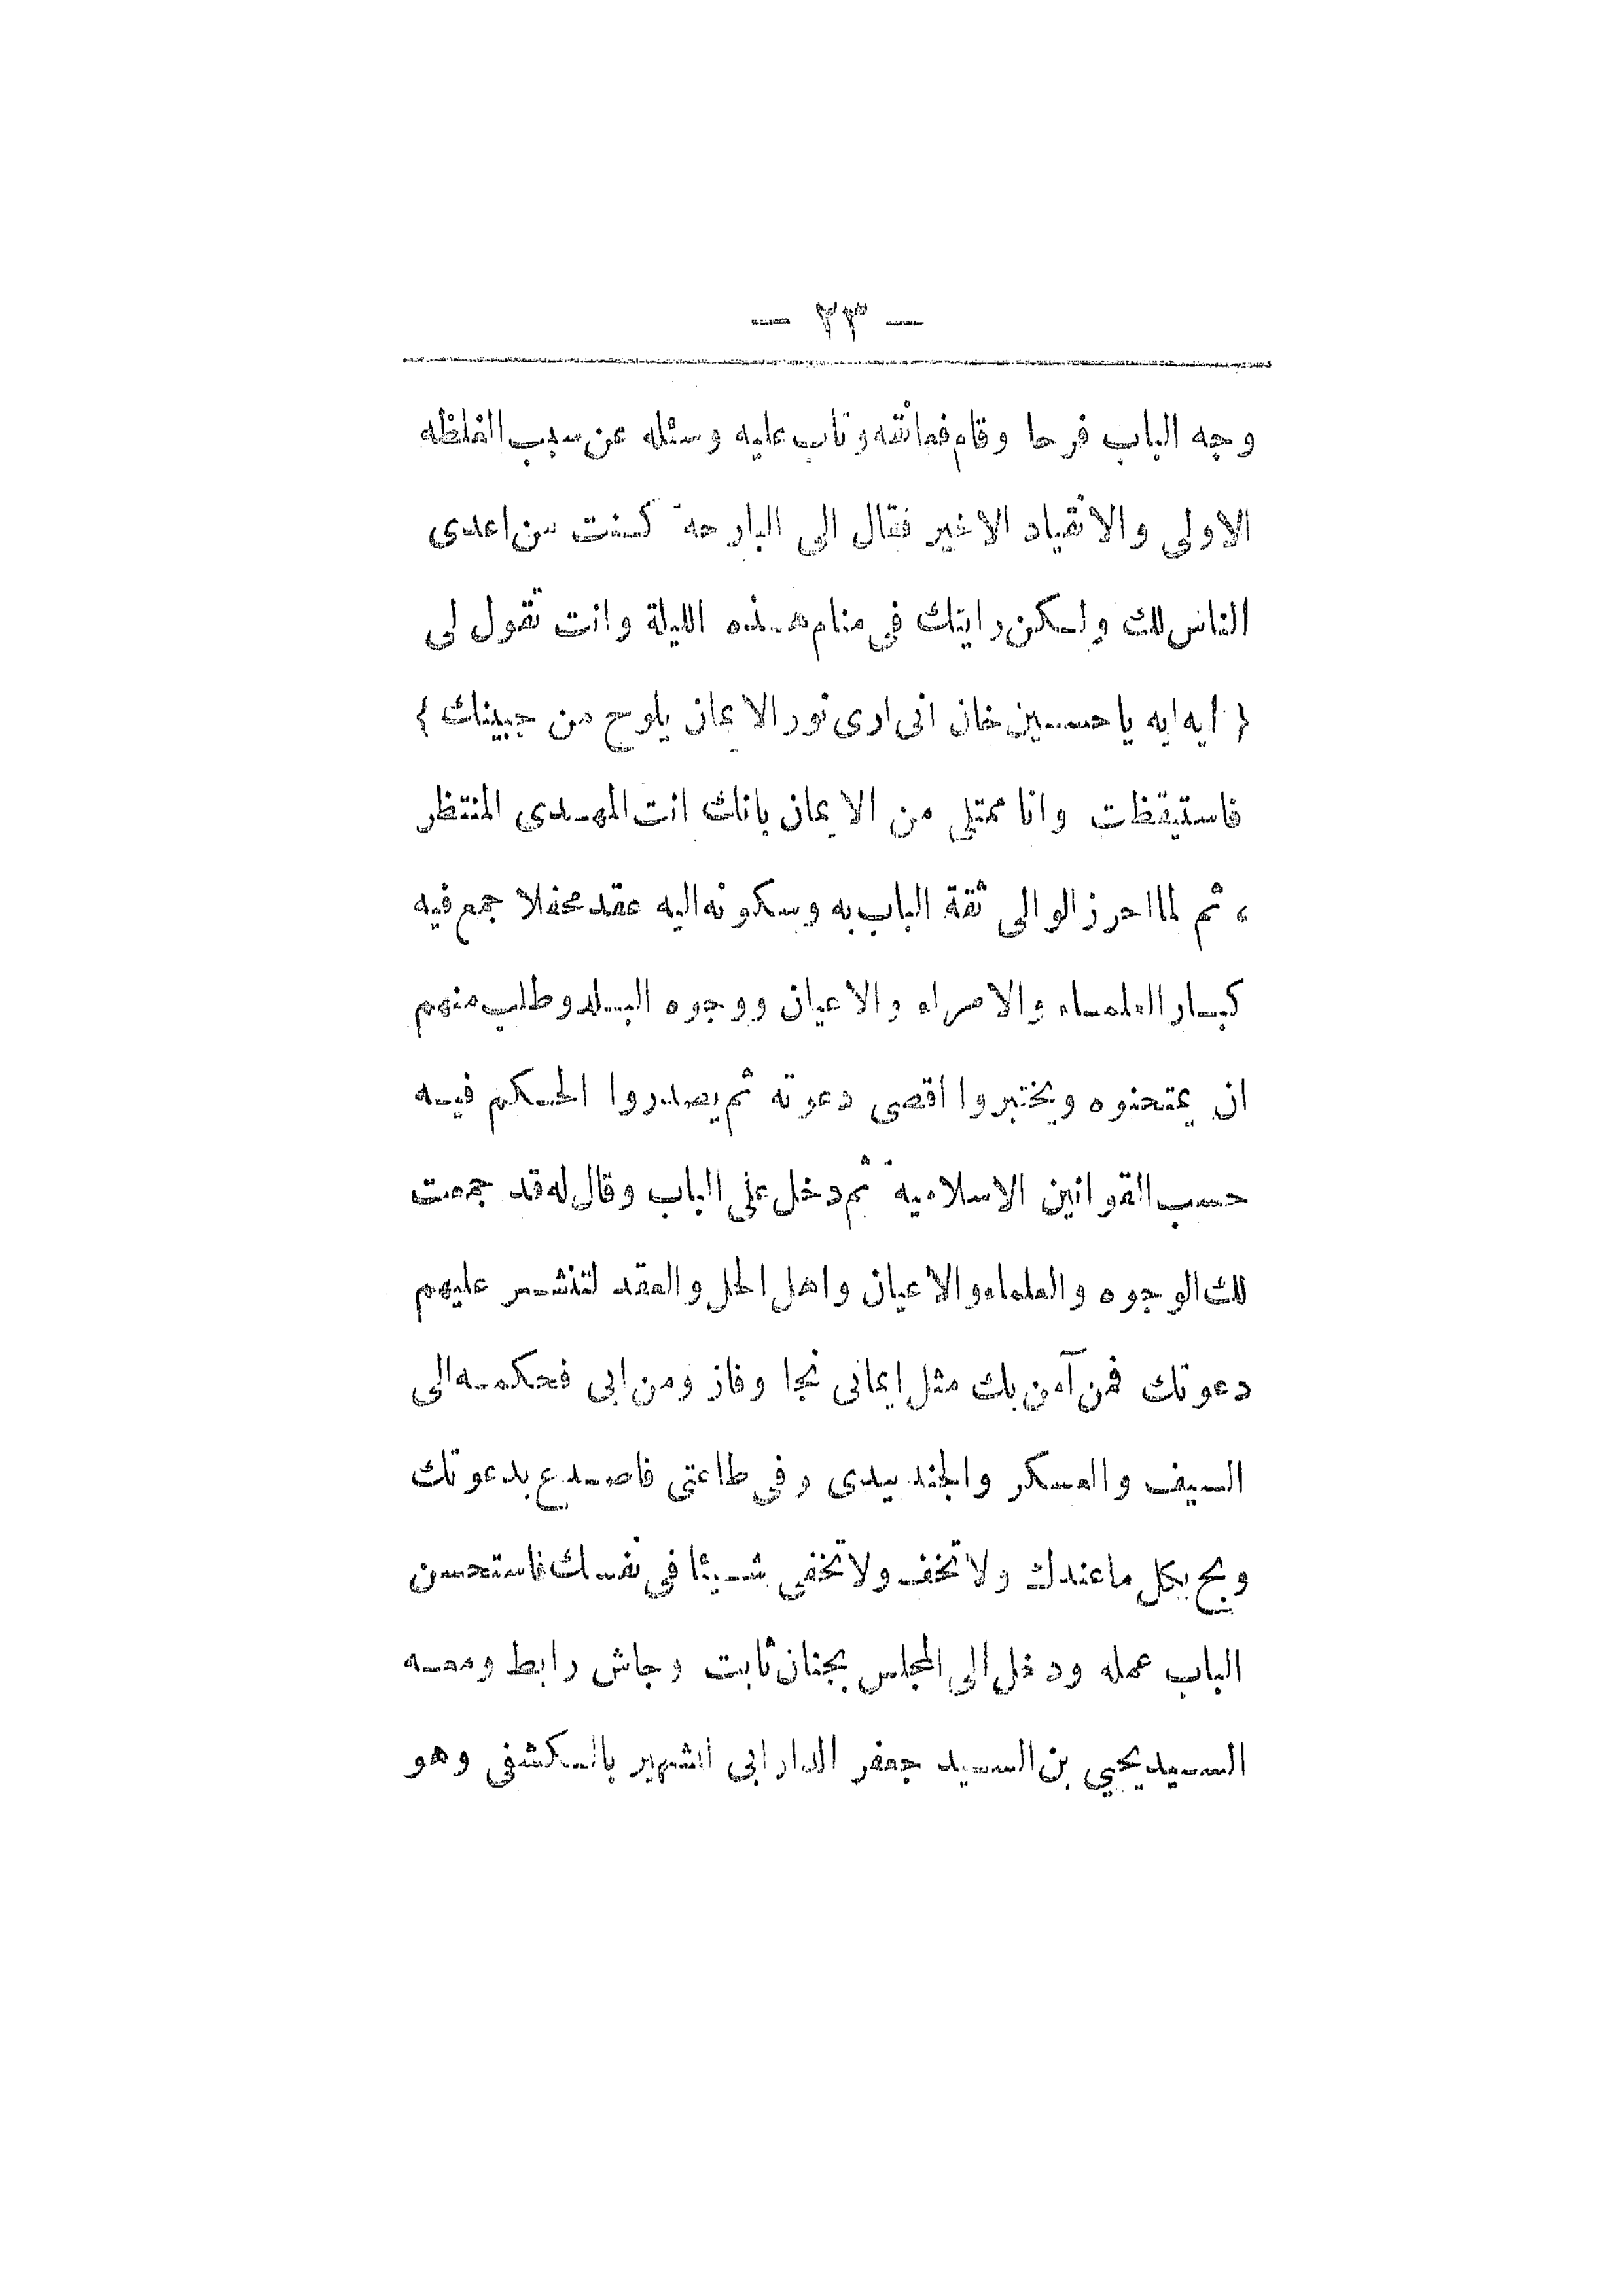 — ٢٣ —
وجه الباب فرحا وقام فعانقه وتاب عليه وسئله عن سبب الغلظه
الاولى والانقياد الاخير فقال الى البارحة كنت من اعدى
الناس لك ولكن رايتك في منام هذه الليلة وانت تقول لى
{ ايه ايه يا حسين خان انى ارى نور الايمان يلوح من جبينك }
فاستيقظت وانا ممتلى من الايمان بانك انت المهدى المنتظر
، ثم لما احرز الوالى ثقة الباب به وسكونه اليه عقد محفلا جمع فيه
كبار العلماء والامراء والاعيان ووجوه البلد وطلب منهم
ان يمتحنوه ويختبروا اقصى دعوته ثم يصدروا الحكم فيه
حسب القوانين الاسلامية ثم دخل على الباب وقال له قد جمعت
لك الوجوه والعلماء والاعيان واهل الحل والعقد لتنشر عليهم
دعوتك فمن آمن بك مثل ايمانى نجا وفاز ومن ابى فحكمه الى
السيف والعسكر والجند بيدى وفي طاعتى فاصدع بدعوتك
وبح بكل ما عندك ولا تخف ولا تخفى شيئا فى نفسك فاستحسن
الباب عمله ودخل الى المجلس بجنان ثابت وجاش رابط ومعه
السيد يحيي بن السيد جعفر الدارابى الشهير بالكشفى وهو